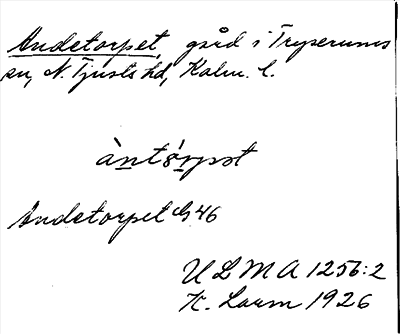 Andetorpet, gård i Tryserums
sn, N. Tjusts hd, Kalm. l.
àntórpət
Andetorpet 46
ULMA 1256:2
K. Larm 1926